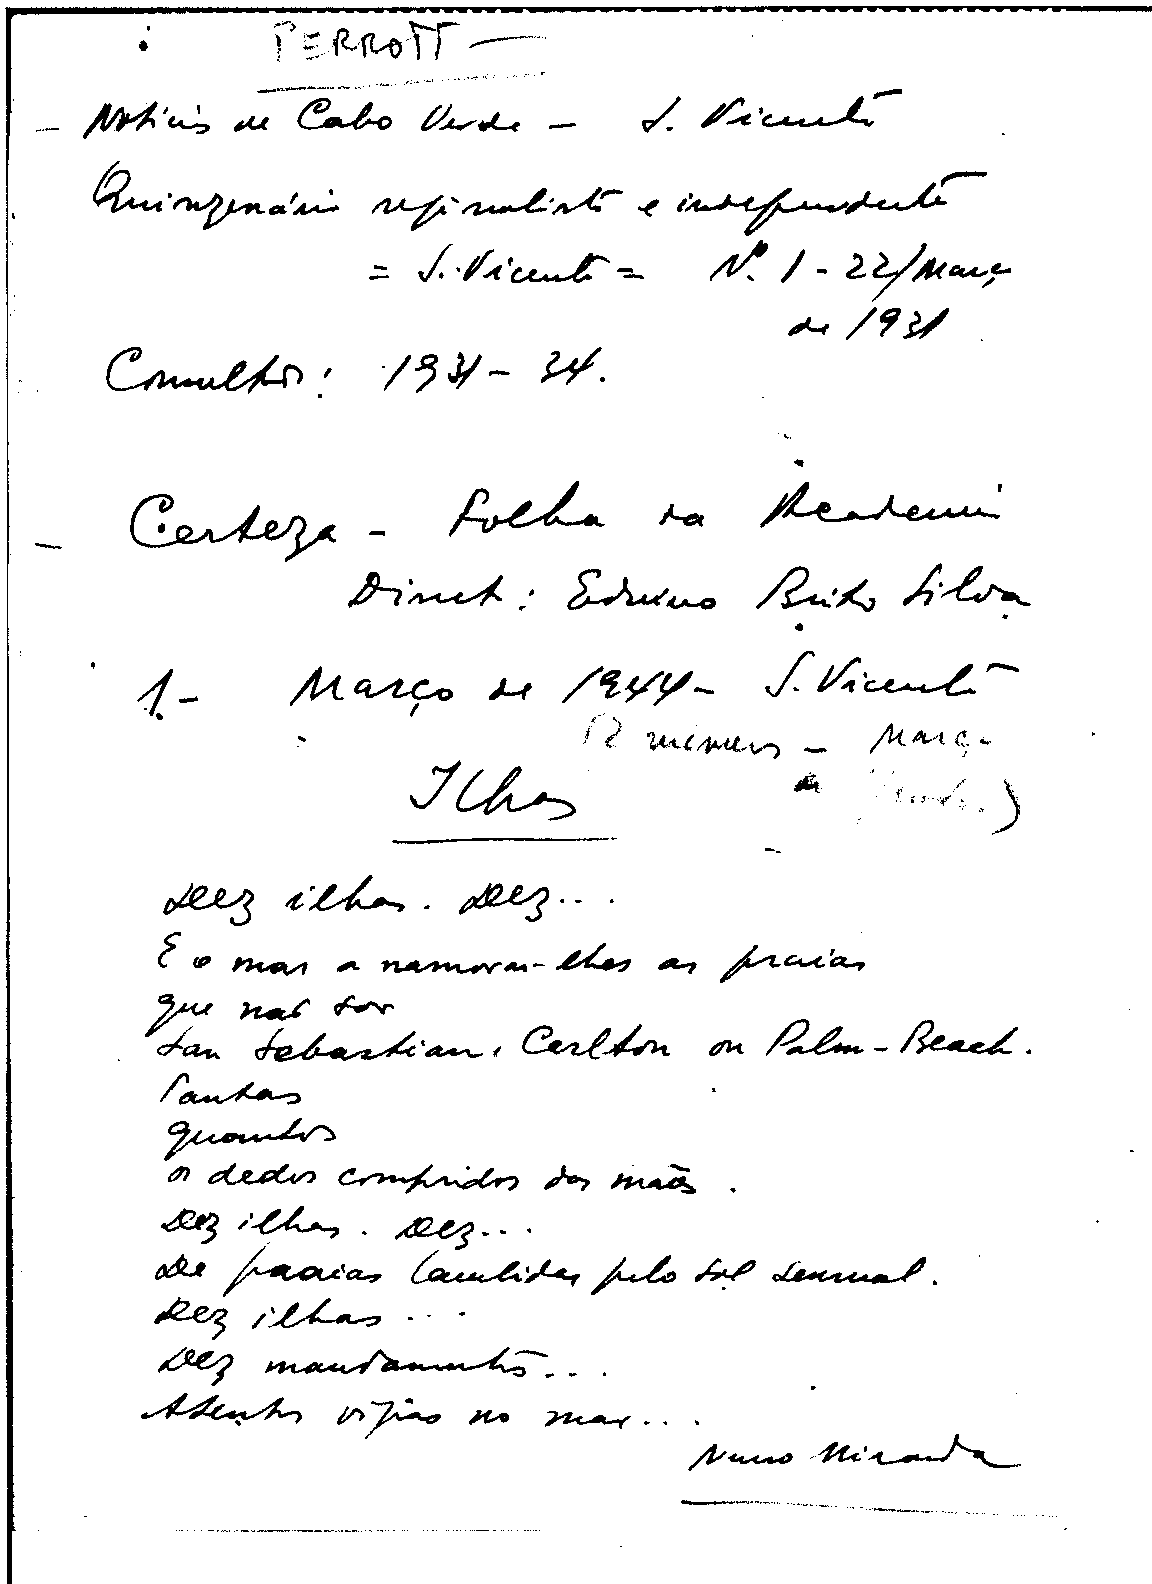 PERROTT —
– Notícias de Cabo Verde – S. Vicente
Quinzenário regionalista e independente
= S. Vicente = Nº. 1 - 22/Março
de 1931
Consultor: 1931 - 34.
– Certeza - Folha da Academia
Direct: Eduino Brito Silva
1. - Março de 1944 - S. Vicente
números – Março
de
Ilhas
Dez ilhas. Dez...
E o mar a namorar-lhes as praias
que não são
San Sebastian, Carlton ou Palm-Beach.
Tantas
quantos
os dedos compridos das mãos.
Dez ilhas. Dez...
De praias lambidas pelo sol sensual.
Dez ilhas...
Dez mandamentos...
Atentos vigias no mar...
Nuno Miranda